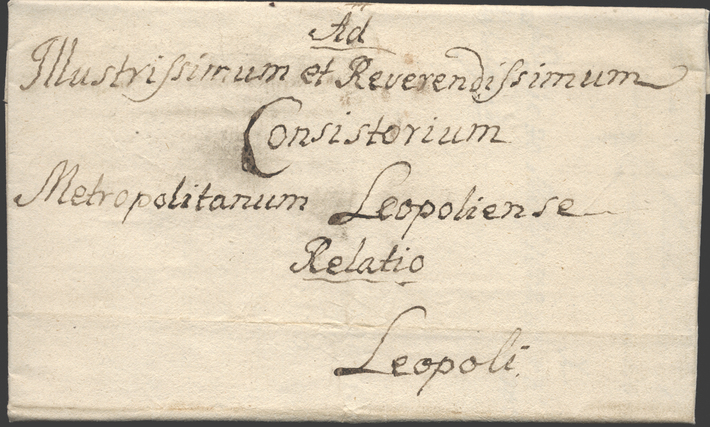 Ad
Illustrissimum et Reverendissimum
Consistorium
Metropolitanum Leopoliense
Relatio
Leopoli.